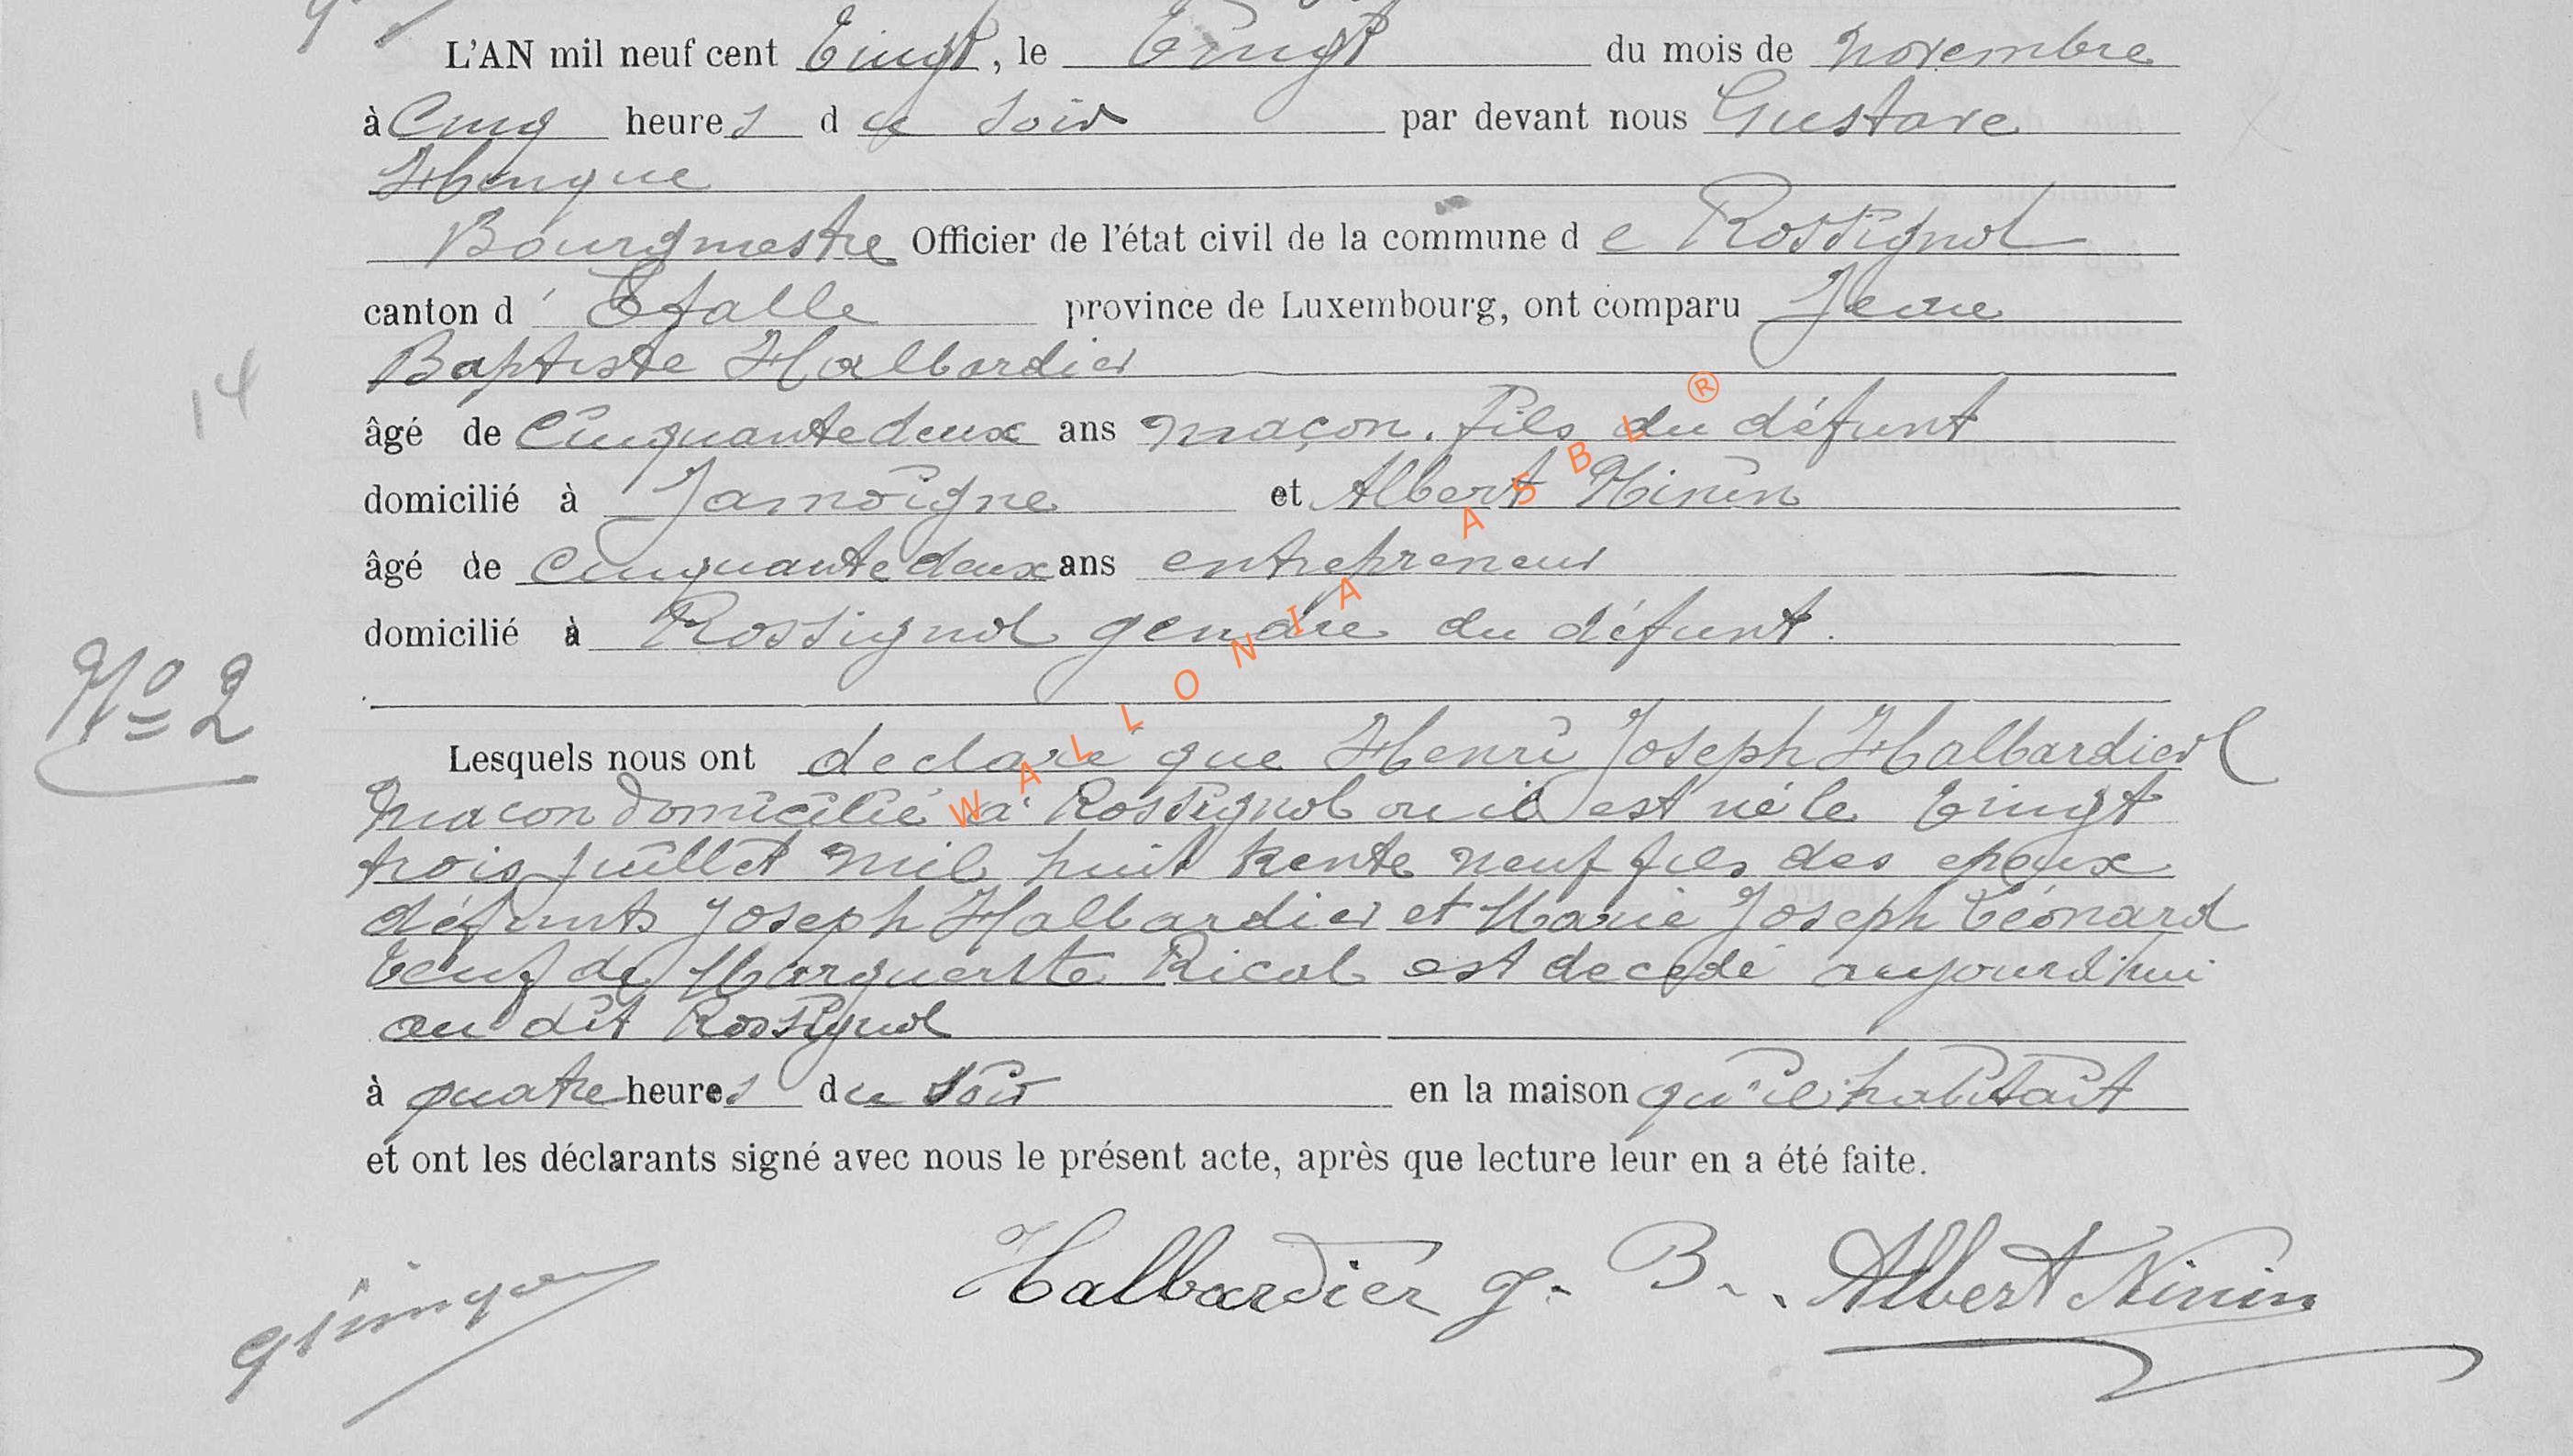 L'AN mil neuf cent Vingt, le Vingt du mois de novembre
à Cinq heures du soir par devant nous Gustave
Hinque
Bourgmestre Officier de l'état civil de la commune de Rossignol
canton d'Etalle province de Luxembourg, ont comparu Jean
Baptiste Halbardier
âgé de Cinquante deux ans maçon. fils du défunt
domicilié à Jamoigne et Albert Ninin
âgé de Cinquante deux ans entrepreneur
domicilié à Rossignol gendre du défunt.
Lesquels nous ont declaré que Henri Joseph Halbardier
macon domicilié à Rossignol ou il est né le Vingt
trois juillet mil huit trente neuf fils des epoux
défunts Joseph Halbardier et Marie Joseph Léonard
Veuf de Marguerite Ricol est decedé aujourd'hui
au dit Rossignol
à quatre heures du soir en la maison qu'il habitait
et ont les déclarants signé avec nous le présent acte, après que lecture leur en a été faite.
14
No 2
Halbardier J. B. Albert Ninin
WALLONIA ASBL ®